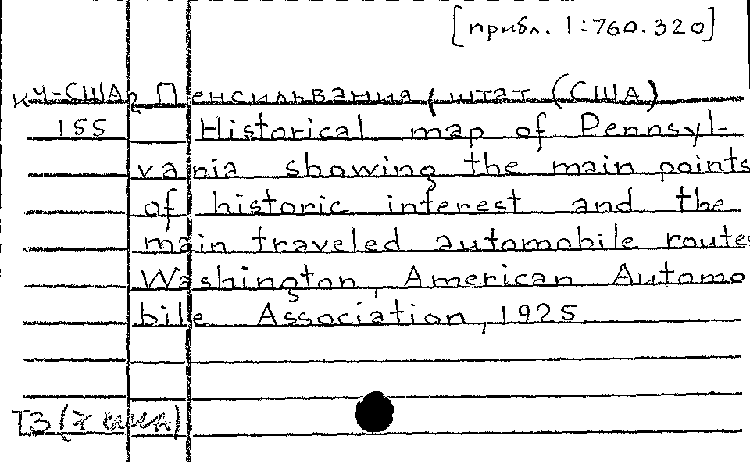 [прибл. 1:760.320]
КЧ-США2 Пенсильвания, штат (США)
155 Historical map of Pennsyl-
vania showing the main points
of historic interest and the
main traveled automobile route
Washington, American Automo
bile Association, 1925
Т3